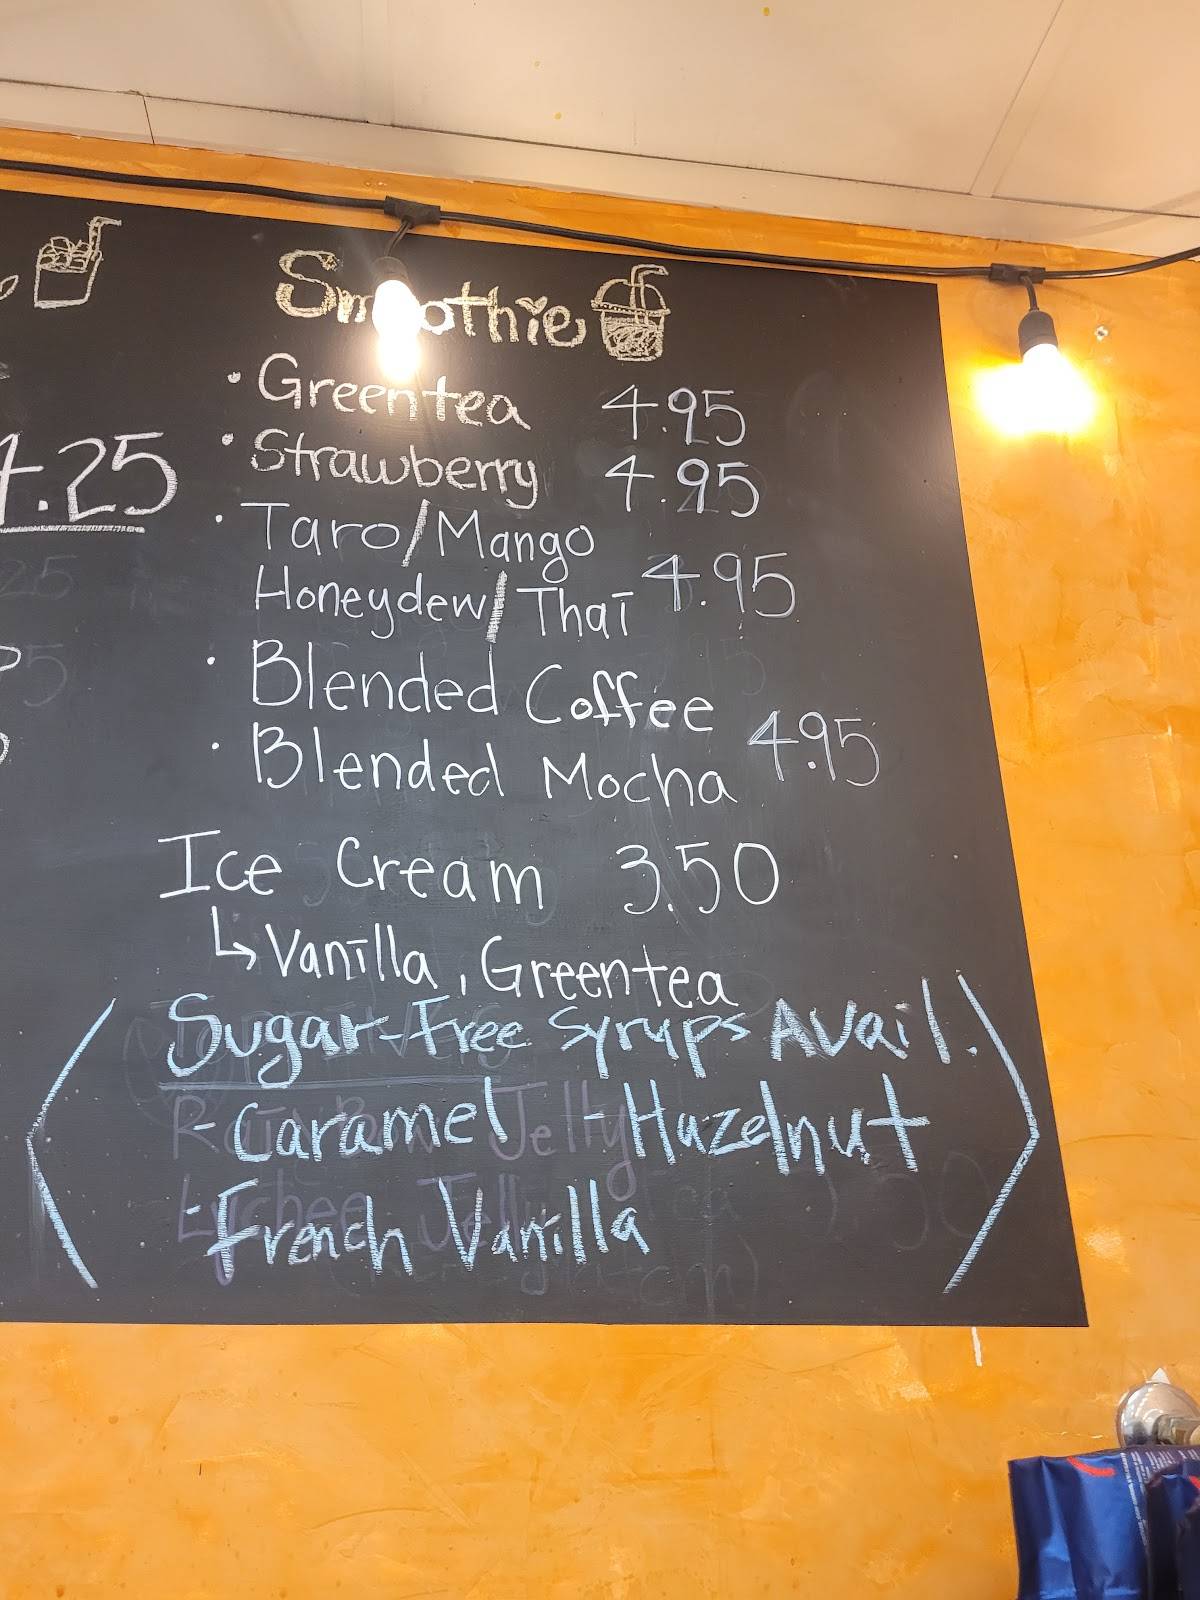 Smoothie
• Greentea 4.95
• Strawberry 4.95
• Taro/Mango
Honeydew/Thai 4.95
• Blended Coffee
• Blended Mocha 4.95
4.25
Ice Cream 3.50
↳ Vanilla, Greentea
Sugar-Free Syrups Avail.
- Caramel - Hazelnut
- French Vanilla
Rainbow Jelly
Lychee Jelly